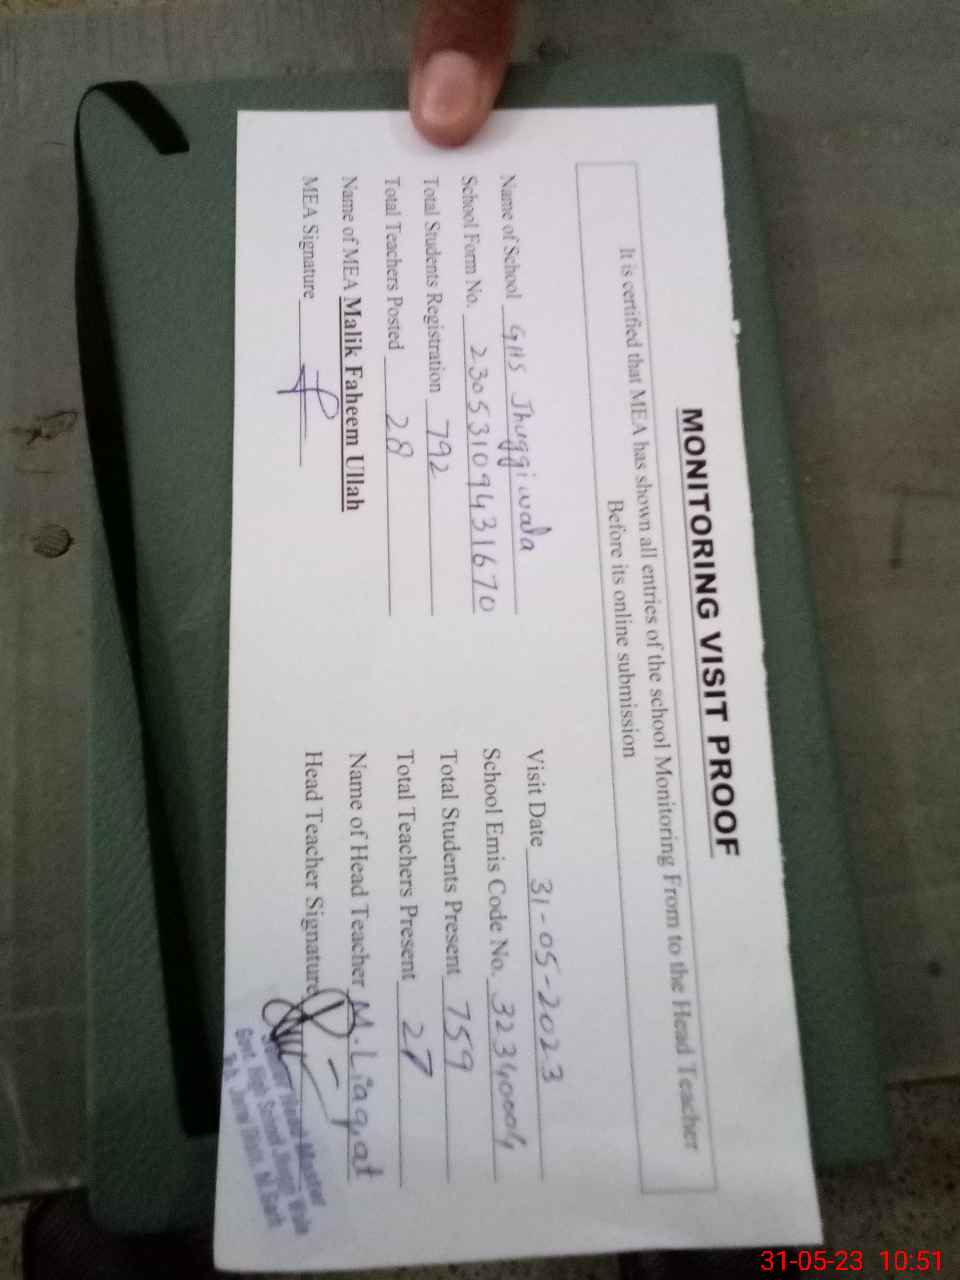 MONITORING VISIT PROOF
It is certified that MEA has shown all entries of the school Monitoring From to the Head Teacher
Before its online submission
Name of School GHS Jhuggiwala
Visit Date 31-05-2023
School Form No. 2305310943167 0
School Emis Code No. 32340004
Total Students Registration 792
Total Students Present 759
Total Teachers Posted 28
Total Teachers Present 27
Name of MEA Malik Faheem Ullah
Name of Head Teacher M. Liaqat
MEA Signature
Head Teacher Signature
Master
Govt. High School Jhuggi Wala
M.Garh
31-05-23 10:51